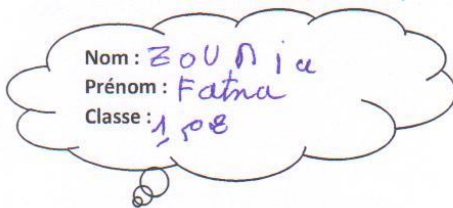 Nom : ZOUNia
Prénom : Fatna
Classe : 1,08